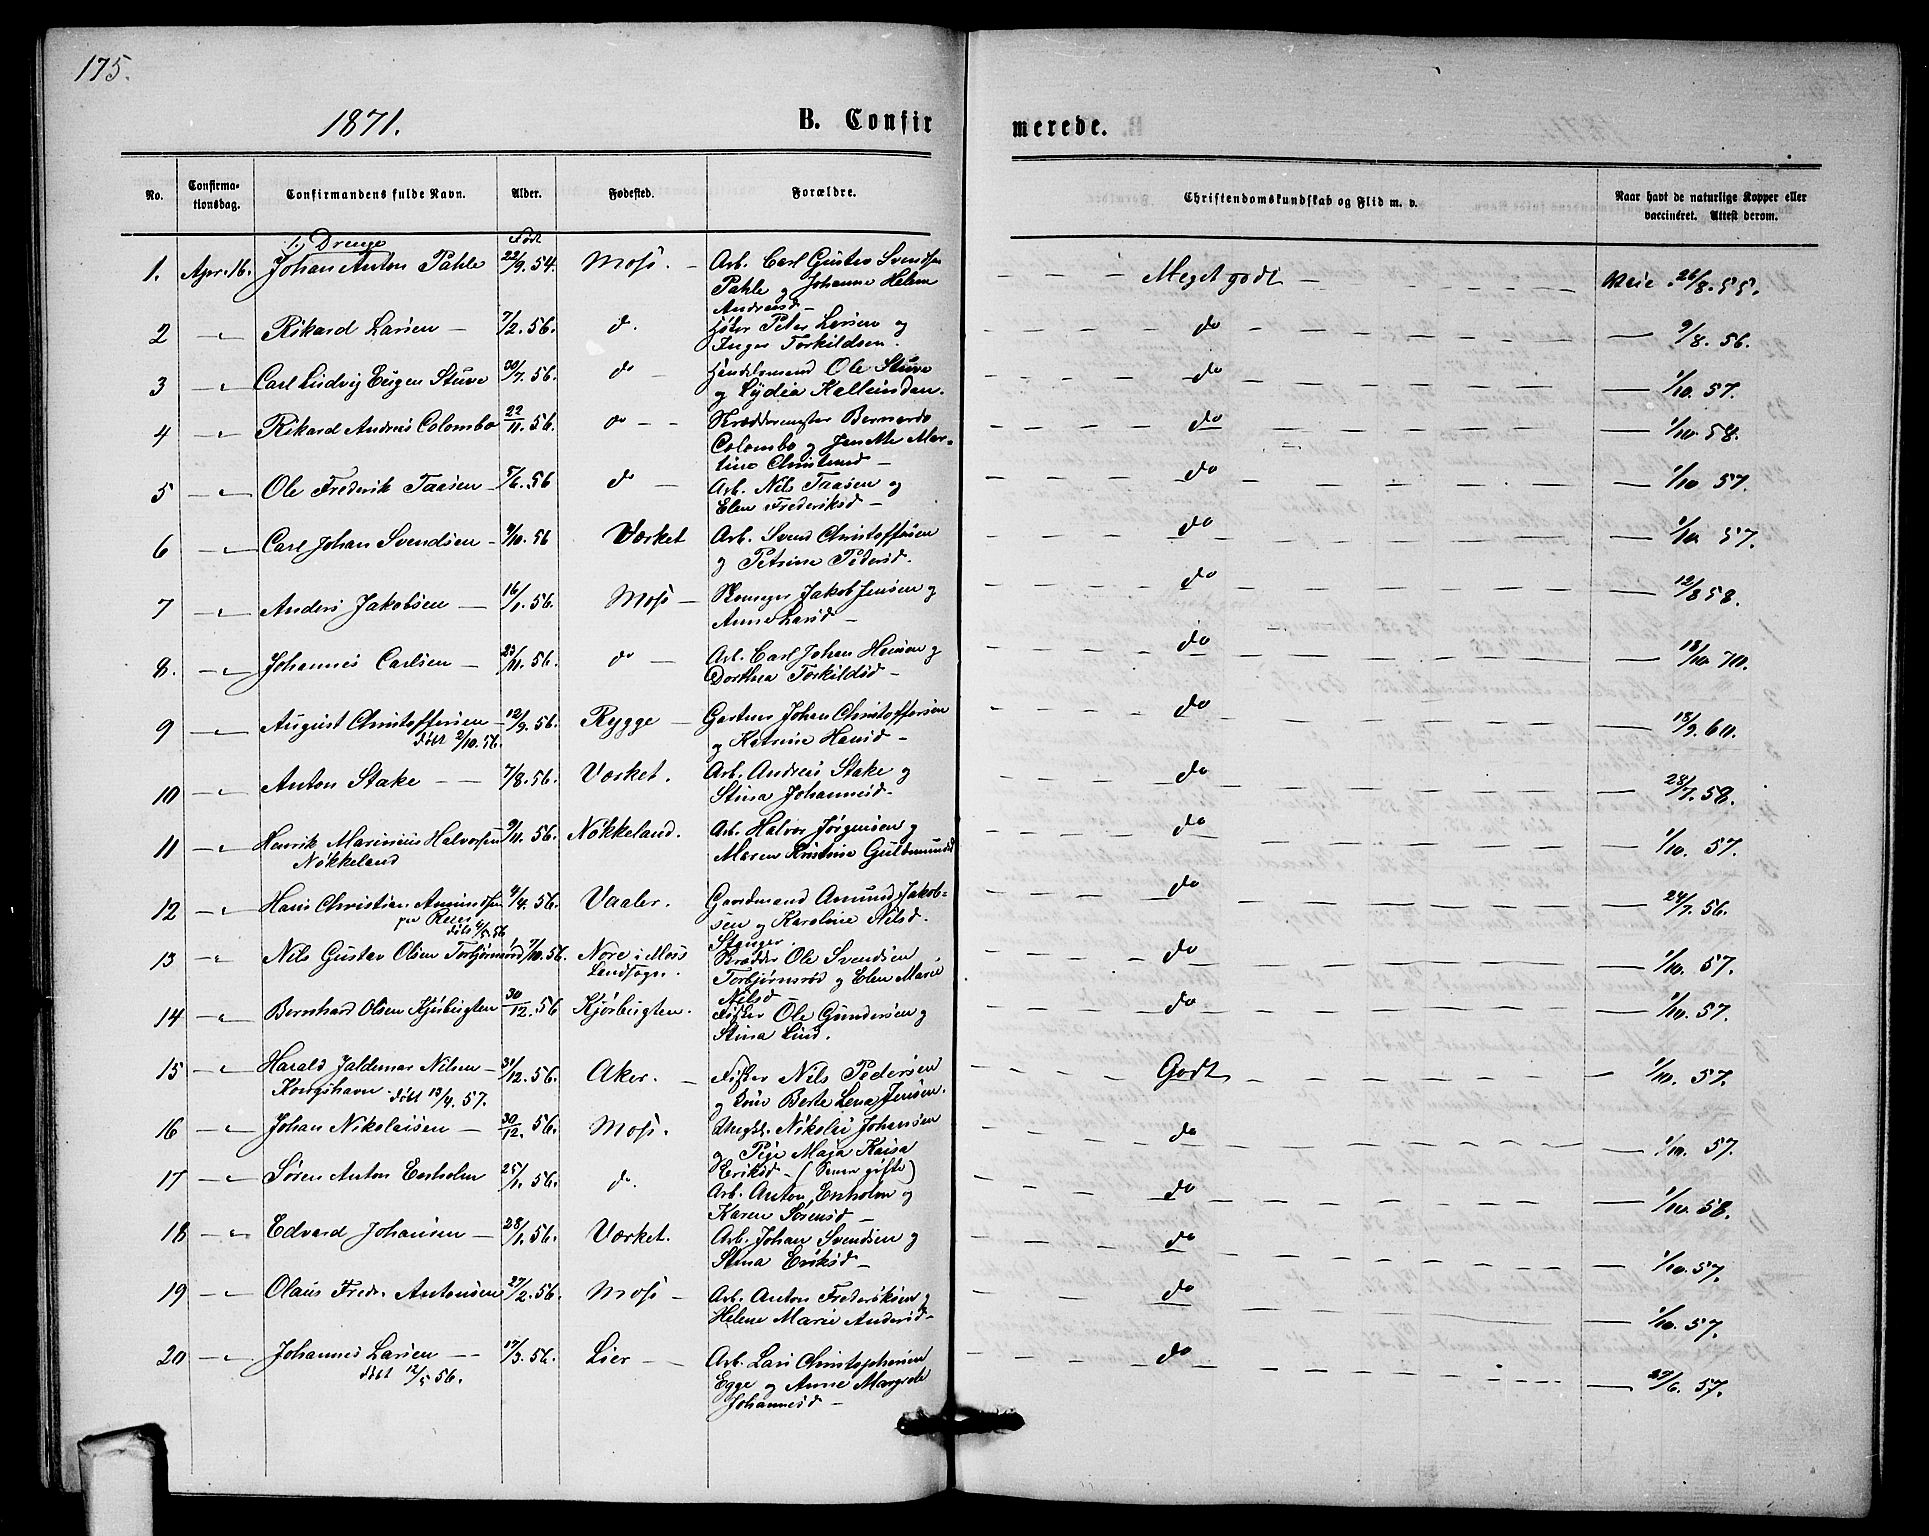 175.
1871.
B. Confir
merede.
No.
Confirma-
tionsdag.
Confirmandens fulde Navn.
Alder.
Fødested.
Forældre.
Christendomskundskab og Flid m. v.
Naar havt de naturlige Kopper eller
vaccineret. Attest derom.
1. Drenge
Født
1. Apr. 16. Johan Anton Pahle 22/9. 54. Moss. – Arb. Carl Gustav Svendsen – – – Meget godt – 26/8. 55.
Pahle og Johanne Helene
Andreasd –
2 –"– Rikard Larsen – 7/2. 56. do. Peter Larsen og do 9/8. 56.
Inger Torkildsen.
3 –"– Carl Ludvig Eugen Stuve 30/7. 56. do – Handelsmand Ole Stuve do 1/10. 57.
og Lydia
4 –"– Rikard Andreas Colombo 22/11. 56. do – – Skræddermester Bernardo do 1/10. 58.
Colombo og Jensthe Mar-
tine Christensd –
5 –"– Ole Frederik Taasen – 5/6. 56 do – Arb. Nils Taasen og do 1/10 57.
Elen Frederiksd –
6 –"– Carl Johan Svendsen – 9/10. 56 Værket Arb. Svend Christoffersen do 1/10 57.
og Petrine Pedersd.
7 –"– Anders Jakobsen – 16/1. 56. Moss – Jakob Jensen og do 12/8 58.
Anne Larsd –
8. –"– Johannes Carlsen – 23/11. 56. do – Arb. Carl Johan Hansen og do 18/10. 70.
Dorthea Torkildsd –
9 –"– August Christoffersen – 12/9. 56. Rygge – Gartner Johan Christoffersen do 18/9. 60.
døbt 2/10. 56. og Katrine Hansd –
10 –"– Anton Stake – – 7/8. 56. Værket. Arb. Andreas Stake og do 28/7. 58.
Stina Johannesd –
11 –"– Henrik Marinius Halvorsen 9/11. 56. Nøkkeland. Arb. Halvor Jørgensen og do 1/10. 57.
Nøkkeland Maren Kristine Gulbmundsd
12 –"– Hans Christian Amundsen 4/4. 56. Vaaler. Gaardmand Amund Jakob- do 24/7. 56.
døbt 4/5 56 sen og Karoline Nilsd.
Stanger.
13 –"– Nils Gustav Olsen Torbjørnsrød 7/10. 56. Nore i Moss Ole Svendsen do 1/10. 57.
Landsogn. Torbjørnsrød og Elen Marie
Nilsd –
14 –"– Bernhard Olsen Kjøbugten 30/12. 56 Kjørbugten. Fisker Ole Gundersen og do 1/10. 57.
Stina Lind.
15 –"– Harald Jaldemar Nilsen – 31/12. 56. Aker. – Fisker Nils Pedersen Godt 1/10. 57.
Kongshavn døbt 13/4. 57. og Berte Lena Jensen.
16 –"– Johan Nikolaisen – 30/12. 56. Moss. Ungk. Nikolai Johansen do 1/10. 57.
og Pige Maja Kaisa
Eriksd – (Senere gifte)
17 –"– Søren Anton Enholm 25/1. 56. do. Arb. Anton Enholm og do 1/10. 58.
Karen Sørensd –
18 –"– Edvard Johansen – 28/1. 56. Værket. Arb. Johan Svendsen og do 1/10. 57.
Stina Eriksd –
19 –"– Olaus Fredr. Antonsen 27/2. 56. Moss – Arb. Anton Frederiksen og do 1/10. 57.
Helene Marie Andersd –
20 –"– Johannes Larsen – – 17/3. 56. Lier – Arb. Lars Christophersen do 29/6. 57.
døbt 12/5 56. Egge og Anne Margrete
Johannesd –